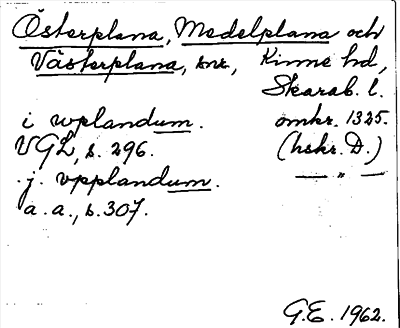 Österplana, Medelplana och
Västerplana, snr, Kinne hd,
Skarab. l.
i wplandum. omkr. 1325.
VGL, s. 296. (hskr. D.)
j. vpplandum. — „ —
a. a., s. 307.
G.E. 1962.